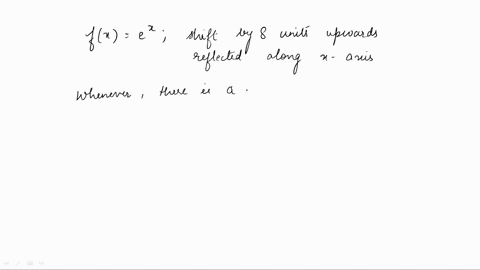 f(x) = e^x ; shift by 8 units upwards
reflected along x-axis
Whenever, there is a .